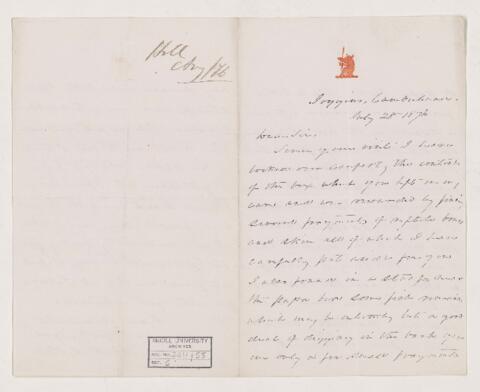 Hill
Aug/76
Joggins, Cumberland.
July 28 1876
Dear Sir
Since your visit I have
looked over carefully the contents
of the box which you left in my
care and was rewarded by finding
several fragments of reptile bones
and skin all of which I have
carefully put aside for you
I also found in a
this paper box some fish remains
which may be entirely but a good
deal of chipping in the dark gave
me only a few small fragments
McGILL UNIVERSITY
ARCHIVES
ACC. NO.
REF.